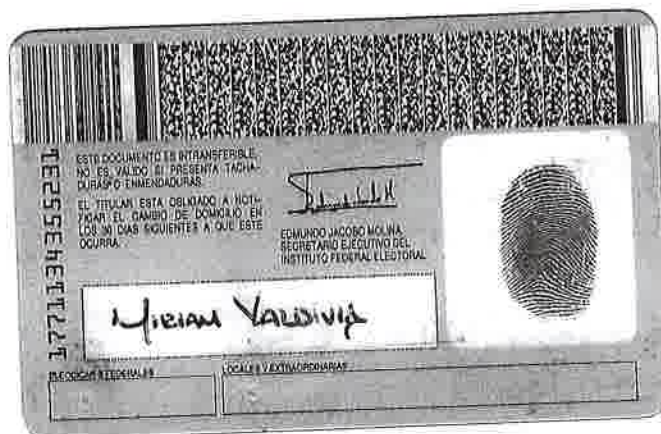 ESTE DOCUMENTO ES INTRANSFERIBLE,
NO ES VALIDO SI PRESENTA TACHA-
DURAS O ENMENDADURAS.
EL TITULAR ESTA OBLIGADO A NOTI-
FICAR EL CAMBIO DE DOMICILIO EN
LOS 30 DIAS SIGUIENTES A QUE ESTE
OCURRA.
EDMUNDO JACOBO MOLINA
SECRETARIO EJECUTIVO DEL
INSTITUTO FEDERAL ELECTORAL
1777113435523​1
MIRIAM VALDIVIA
FEDERALES
LOCALES Y EXTRAORDINARIAS